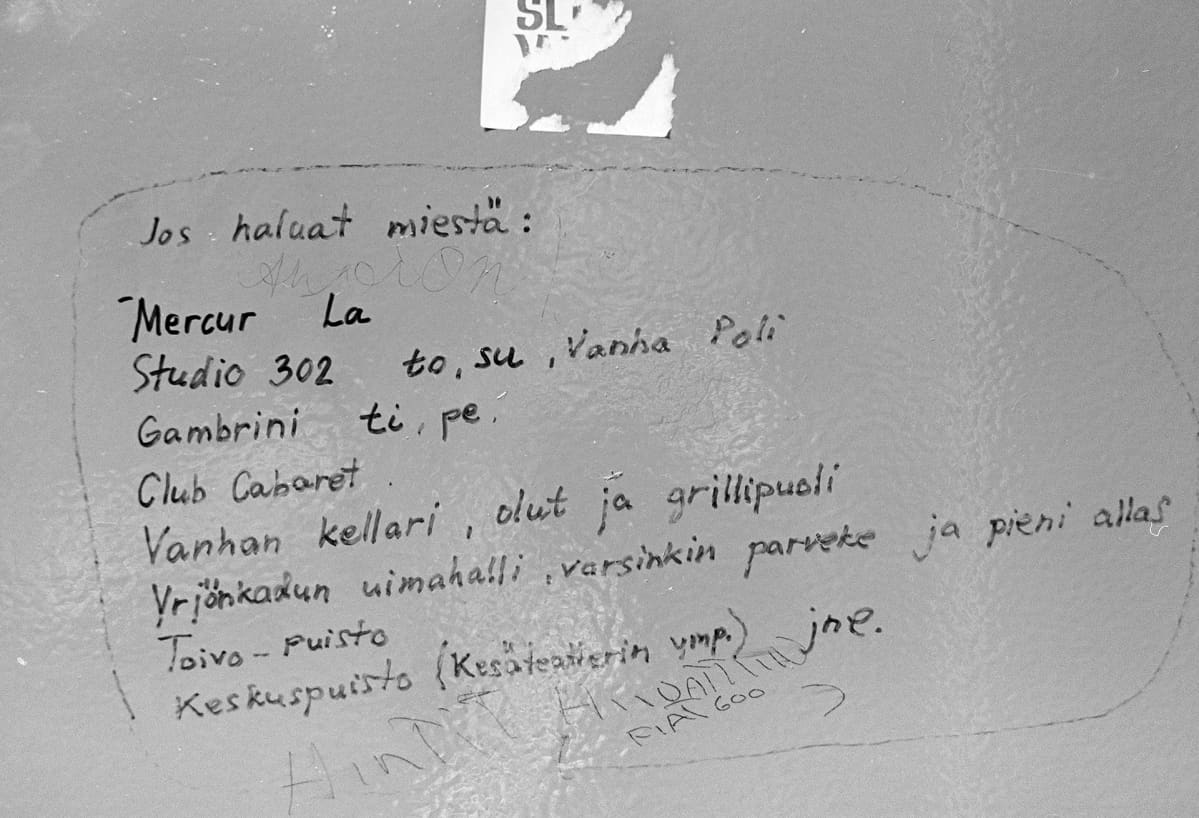 SL
Jos haluat miestä:
-Mercur La
Studio 302 to, su, Vanha Poli
Gambrini ti, pe.
Club Cabaret.
Vanhan kellari, olut ja grillipuoli
Yrjönkadun uimahalli, varsinkin parveke ja pieni allas
Toivo-Puisto
Keskuspuisto (Kesäteatterin ymp.) jne.
HINTIT
FIAT 600